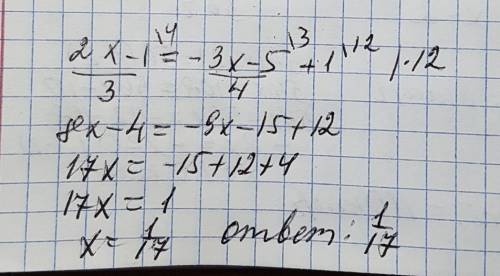 (2x-1)/3 \4 = -(3x-5)/4 \3 +1 \12 |·12
8x-4 = -9x-15+12
17x = -15+12+4
17x = 1
x = 1/17 ответ: 1/17